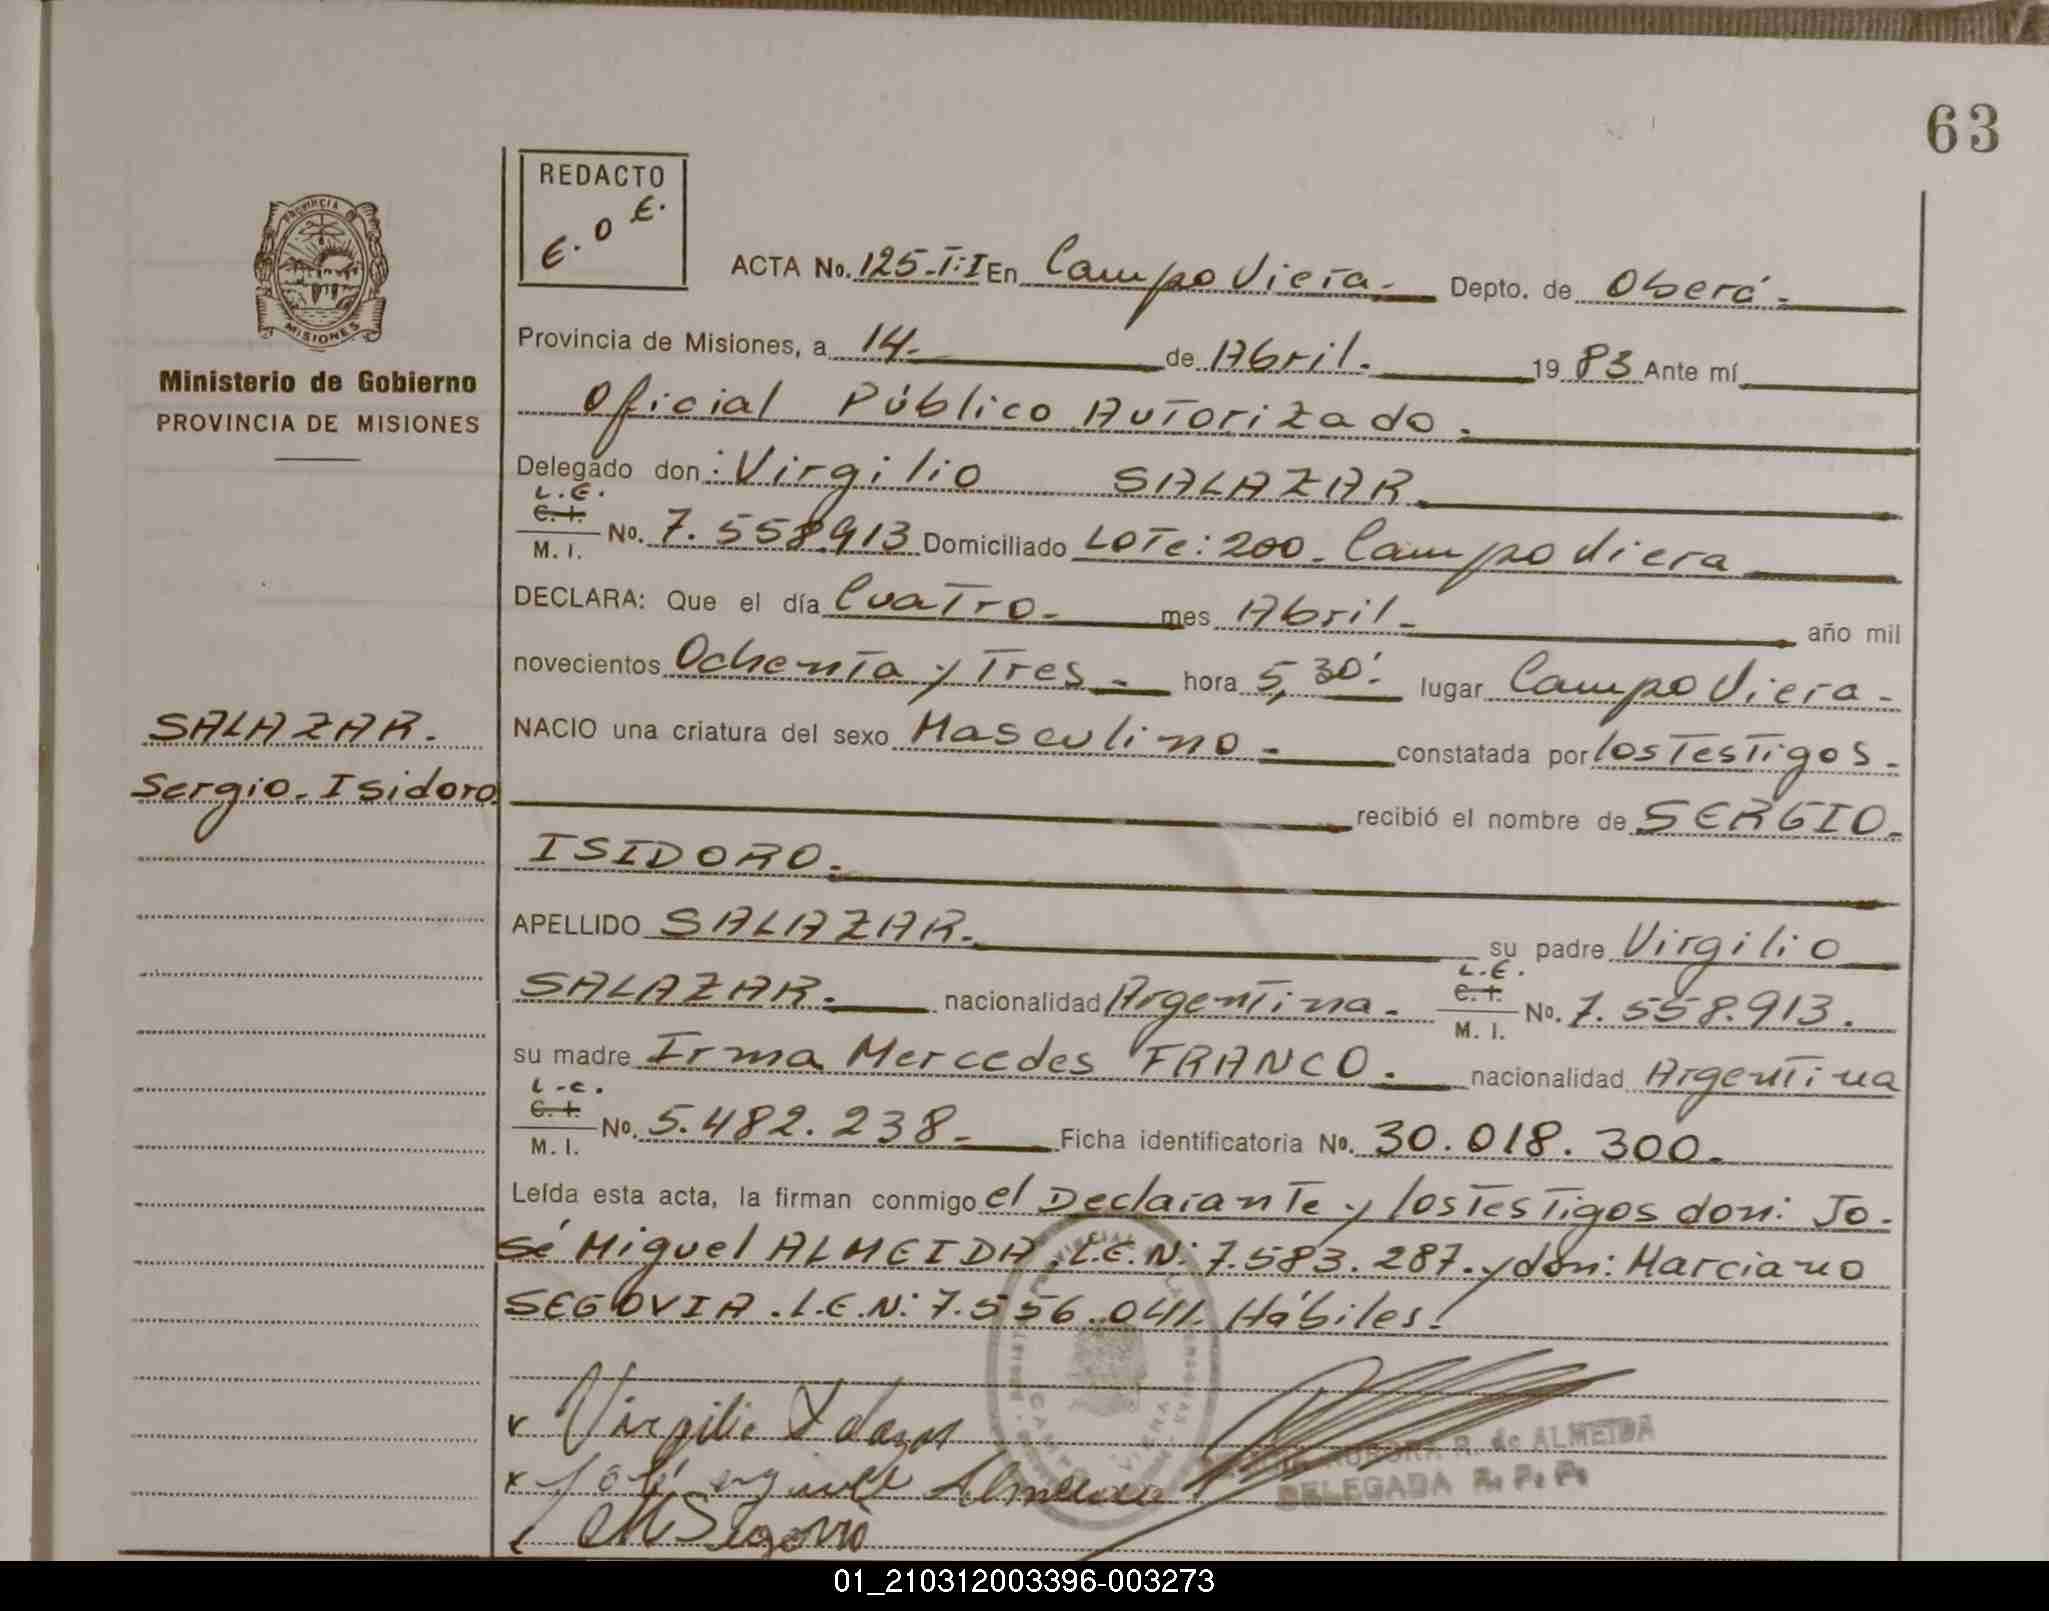 63
REDACTO
E. O E.
PROVINCIA DE
MISIONES
Ministerio de Gobierno
PROVINCIA DE MISIONES
ACTA No. 125-T:I En Campo Viera.- Depto. de Oberá.-
Provincia de Misiones, a 14.- de Abril.- 1983 Ante mí
Oficial Público Autorizado.
Delegado don: Virgilio SALAZAR.
L.E.
C. I. M. I. No. 7.558.913 Domiciliado LOTe: 200. Campo Viera
DECLARA: Que el día Cuatro.- mes Abril.- año mil
novecientos Ochenta y Tres.- hora 5,30'.- lugar Campo Viera.-
NACIO una criatura del sexo Masculino.- constatada por los Testigos.-
SALAZAR.
Sergio. Isidoro.
recibió el nombre de SERGIO.
ISIDORO.-
APELLIDO SALAZAR.- su padre Virgilio
L.E.
SALAZAR.- nacionalidad Argentina.- C. I. M. I. No. 7.558.913.
su madre Irma Mercedes FRANCO.- nacionalidad Argentina
L.C.
C. I. M. I. No. 5.482.238.- Ficha identificatoria No. 30.018.300.-
Leída esta acta, la firman conmigo el Declarante y los Testigos don: Jo-
sé Miguel ALMEIDA. L.E.N: 7.583.287. y don: Marciano
SEGOVIA. L.E.N: 7.556.041. Hábiles.
Virgilio
José
M Segovia
R. de ALMEIDA
DELEGADA R. P. P.
01_210312003396-003273